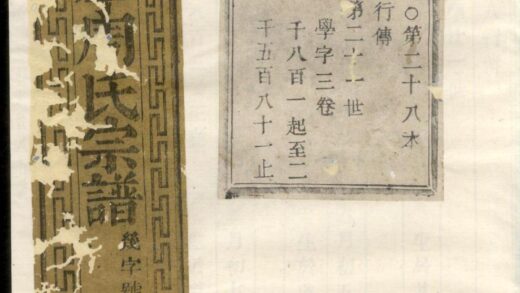 ○第二十八本
行傳
第二十一世
學字三卷
千八百一起至二
千五百八十一止
周氏宗譜
幾字號